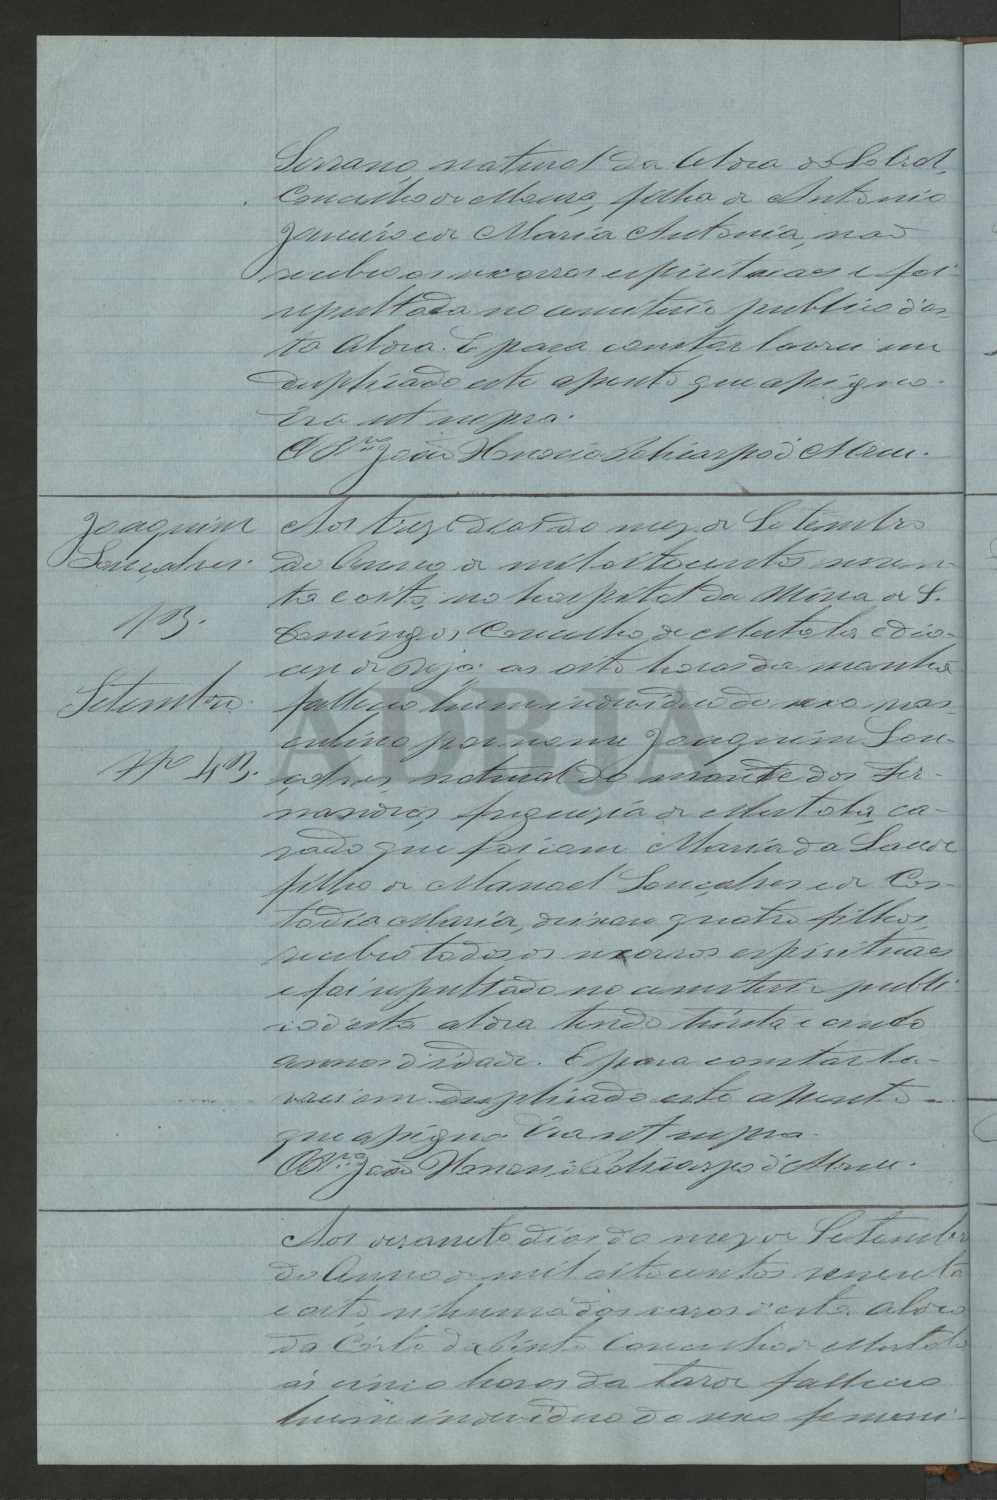 Serrano, natural da Aldea do Sobral,
Concelho de Moura, filha de Antonio
Janeiro e de Maria Antonia, não
recebeo os socorros espirituaes e foi
sepultada no cemiterio publico d'es-
ta Aldea. E para constar lavrei em
duplicado este assento que assigno.
Era ut supra.
O Pr.^or João Honorio Policarpo d'Abreu.
Joaquim
Gonçalves.
Setembro
Nº 43.
Aos treze dias do mez de Setembro
do Anno de mil oitocentos noven-
ta e oito, no hospital da Mina de S.
Domingos Concelho de Mertola e Dio-
cese de Beja: as oito horas da manhã
falleceo hum individuo do sexo mas-
culino por nome Joaquim Gon-
çalves, natural do monte dos Fer-
nandes, freguezia de Mertola, ca-
zado que foi com Maria da Saude
filho de Manoel Gonçalves e de Cus-
todia Maria, deixou quatro filhos,
recebeo todos os socorros espirituaes
e foi sepultado no cemiterio publi-
co d'esta aldea tendo trinta e cinco
annos d'idade. E para constar la-
vrei em duplicado este assento
que assigno Era ut supra.
O Pr.^or João Honorio Policarpo d'Abreu.
Aos dezanete dias do mez de Setembro
do Anno de mil oitocentos noventa
e oito, n'huma das cazas d'esta aldea
da Corte do Pinto Concelho de Mertola
ás cinco horas da tarde falleceo
hum individuo do sexo femeni-
ADBJA